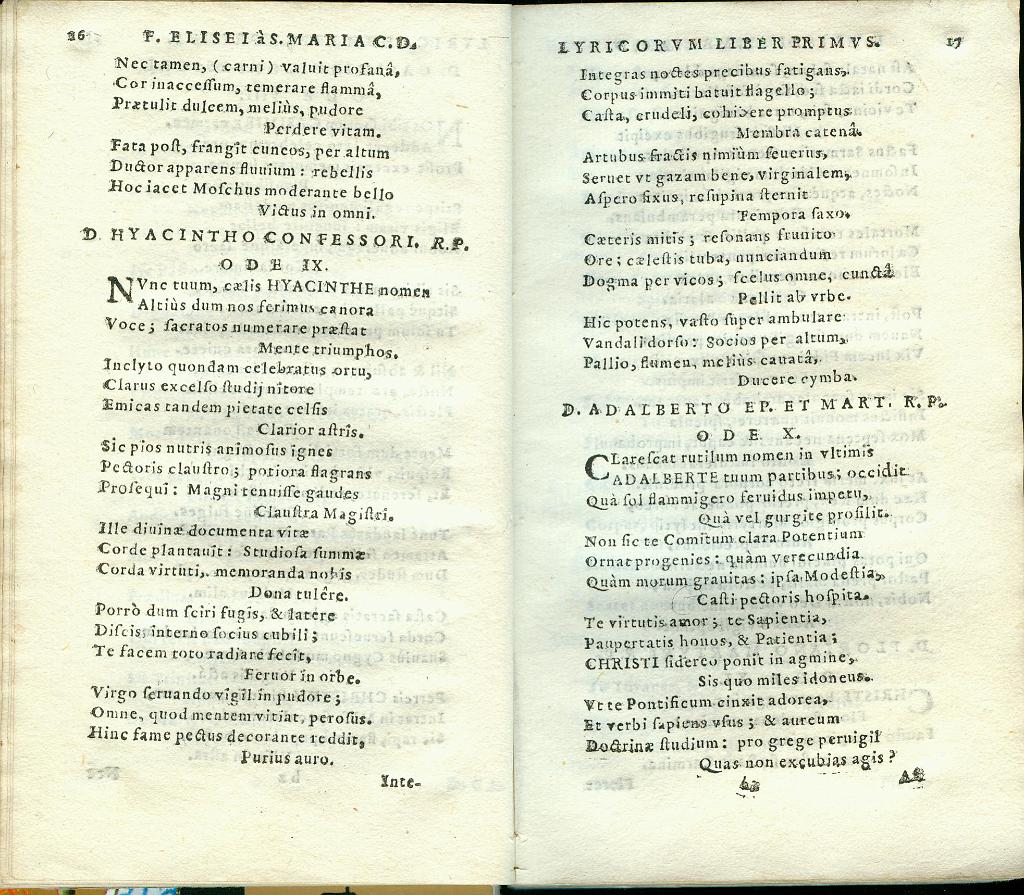 26 F. ELISEI à S. MARIA C. D.
Nec tamen, (carni) valuit profanâ,
Cor inaccessum, temerare flammâ,
Prætulit dulcem, meliùs, pudore
Perdere vitam.
Fata post, frangit cuneos, per altum
Ductor apparens fluuium : rebellis
Hoc iacet Moschus moderante bello
Victus in omni.
D. HYACINTHO CONFESSORI. R. P.
ODE IX.
NVnc tuum, cælis HYACINTHE nomen
Altiùs dum nos ferimus canora
Voce ; sacratos numerare præstat
Mente triumphos.
Inclyto quondam celebratus ortu,
Clarus excelso studij nitore
Emicas tandem pietate celsis
Clarior astris.
Sic pios nutris animosus ignes
Pectoris claustro ; potiora flagrans
Prosequi : Magni tenuisse gaudes
Claustra Magistri.
Ille diuinæ documenta vitæ
Corde plantauit : Studiosa summæ
Corda virtuti, memoranda nobis
Dona tulêre.
Porrò dum sciri fugis, & latere
Discis, interno socius cubili ;
Te facem toto radiare fecit,
Feruor in orbe.
Virgo seruando vigil in pudore ;
Omne, quod mentem vitiat, perosus.
Hinc fame pectus decorante reddit,
Purius auro.
Inte-
LYRICORVM LIBER PRIMVS. 17
Integras noctes precibus fatigans,
Corpus immiti batuit flagello ;
Casta, crudeli, cohibere promptus
Membra catenâ.
Artubus fractis nimiùm seuerus,
Seruet vt gazam bene, virginalem,
Aspero fixus, resupina sternit
Tempora saxo.
Cæteris mitis ; resonans frunito
Ore ; cælestis tuba, nunciandum
Dogma per vicos ; scelus omne, cunctâ
Pellit ab vrbe.
Hic potens, vasto super ambulare
Vandali dorso : Socios per altum,
Pallio, flumen, meliùs cauatâ,
Ducere cymba.
D. ADALBERTO EP. ET MART. R. P.
ODE X.
CLarescat rutilum nomen in vltimis
ADALBERTE tuum partibus ; occidit
Quà sol flammigero feruidus impetu,
Quà vel gurgite prosilit.
Non sic te Comitum clara Potentium
Ornat progenies : quàm verecundia
Quàm morum grauitas : ipsa Modestia,
Casti pectoris hospita.
Te virtutis amor ; te Sapientia,
Paupertatis honos, & Patientia ;
CHRISTI sidereo ponit in agmine,
Sis quo miles idoneus.
Vt te Pontificum cinxit adorea,
Et verbi sapiens vsus ; & aureum
Doctrinæ studium : pro grege peruigil
Quas non excubias agis ?